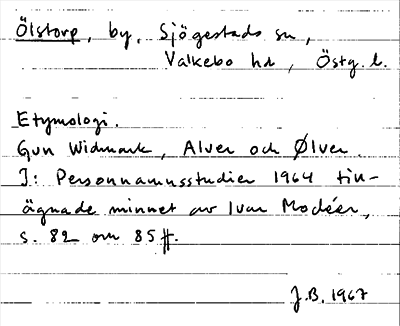 Ölstorp, by, Sjögestads sn,
Valkebo hd, Östg. l.
Etymologi.
Gun Widmark, Alver och Ølver.
I: Personnamnsstudier 1964 till-
ägnade minnet av Ivar Modéer,
s. 82 om 85 ff.
J.B. 1967